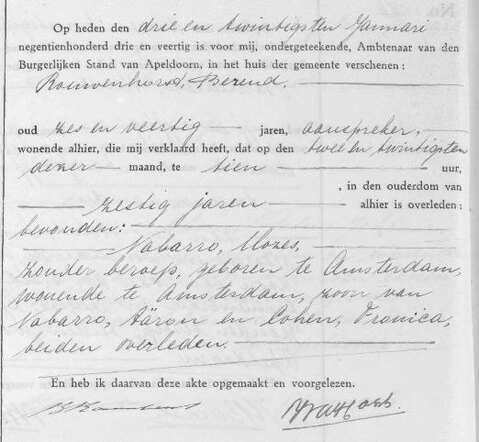 Op heden den drie en twintigsten Januari
negentienhonderd drie en veertig is voor mij, ondergeteekende, Ambtenaar van den
Burgerlijken Stand van Apeldoorn, in het huis der gemeente verschenen:
Rouwenhorst, Berend.
oud zes en veertig jaren, aanspreker,
wonende alhier, die mij verklaard heeft, dat op den twee en twintigsten
dezer maand, te tien uur,
, in den ouderdom van
zestig jaren alhier is overleden:
bevonden:
Nabarro, Mozes,
zonder beroep, geboren te Amsterdam,
wonende te Amsterdam, zoon van
Nabarro, Aäron en Cohen, Vronica,
beiden overleden.
En heb ik daarvan deze akte opgemaakt en voorgelezen.